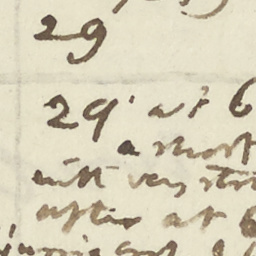 29
29 at 6
a short
with very str
after at 6